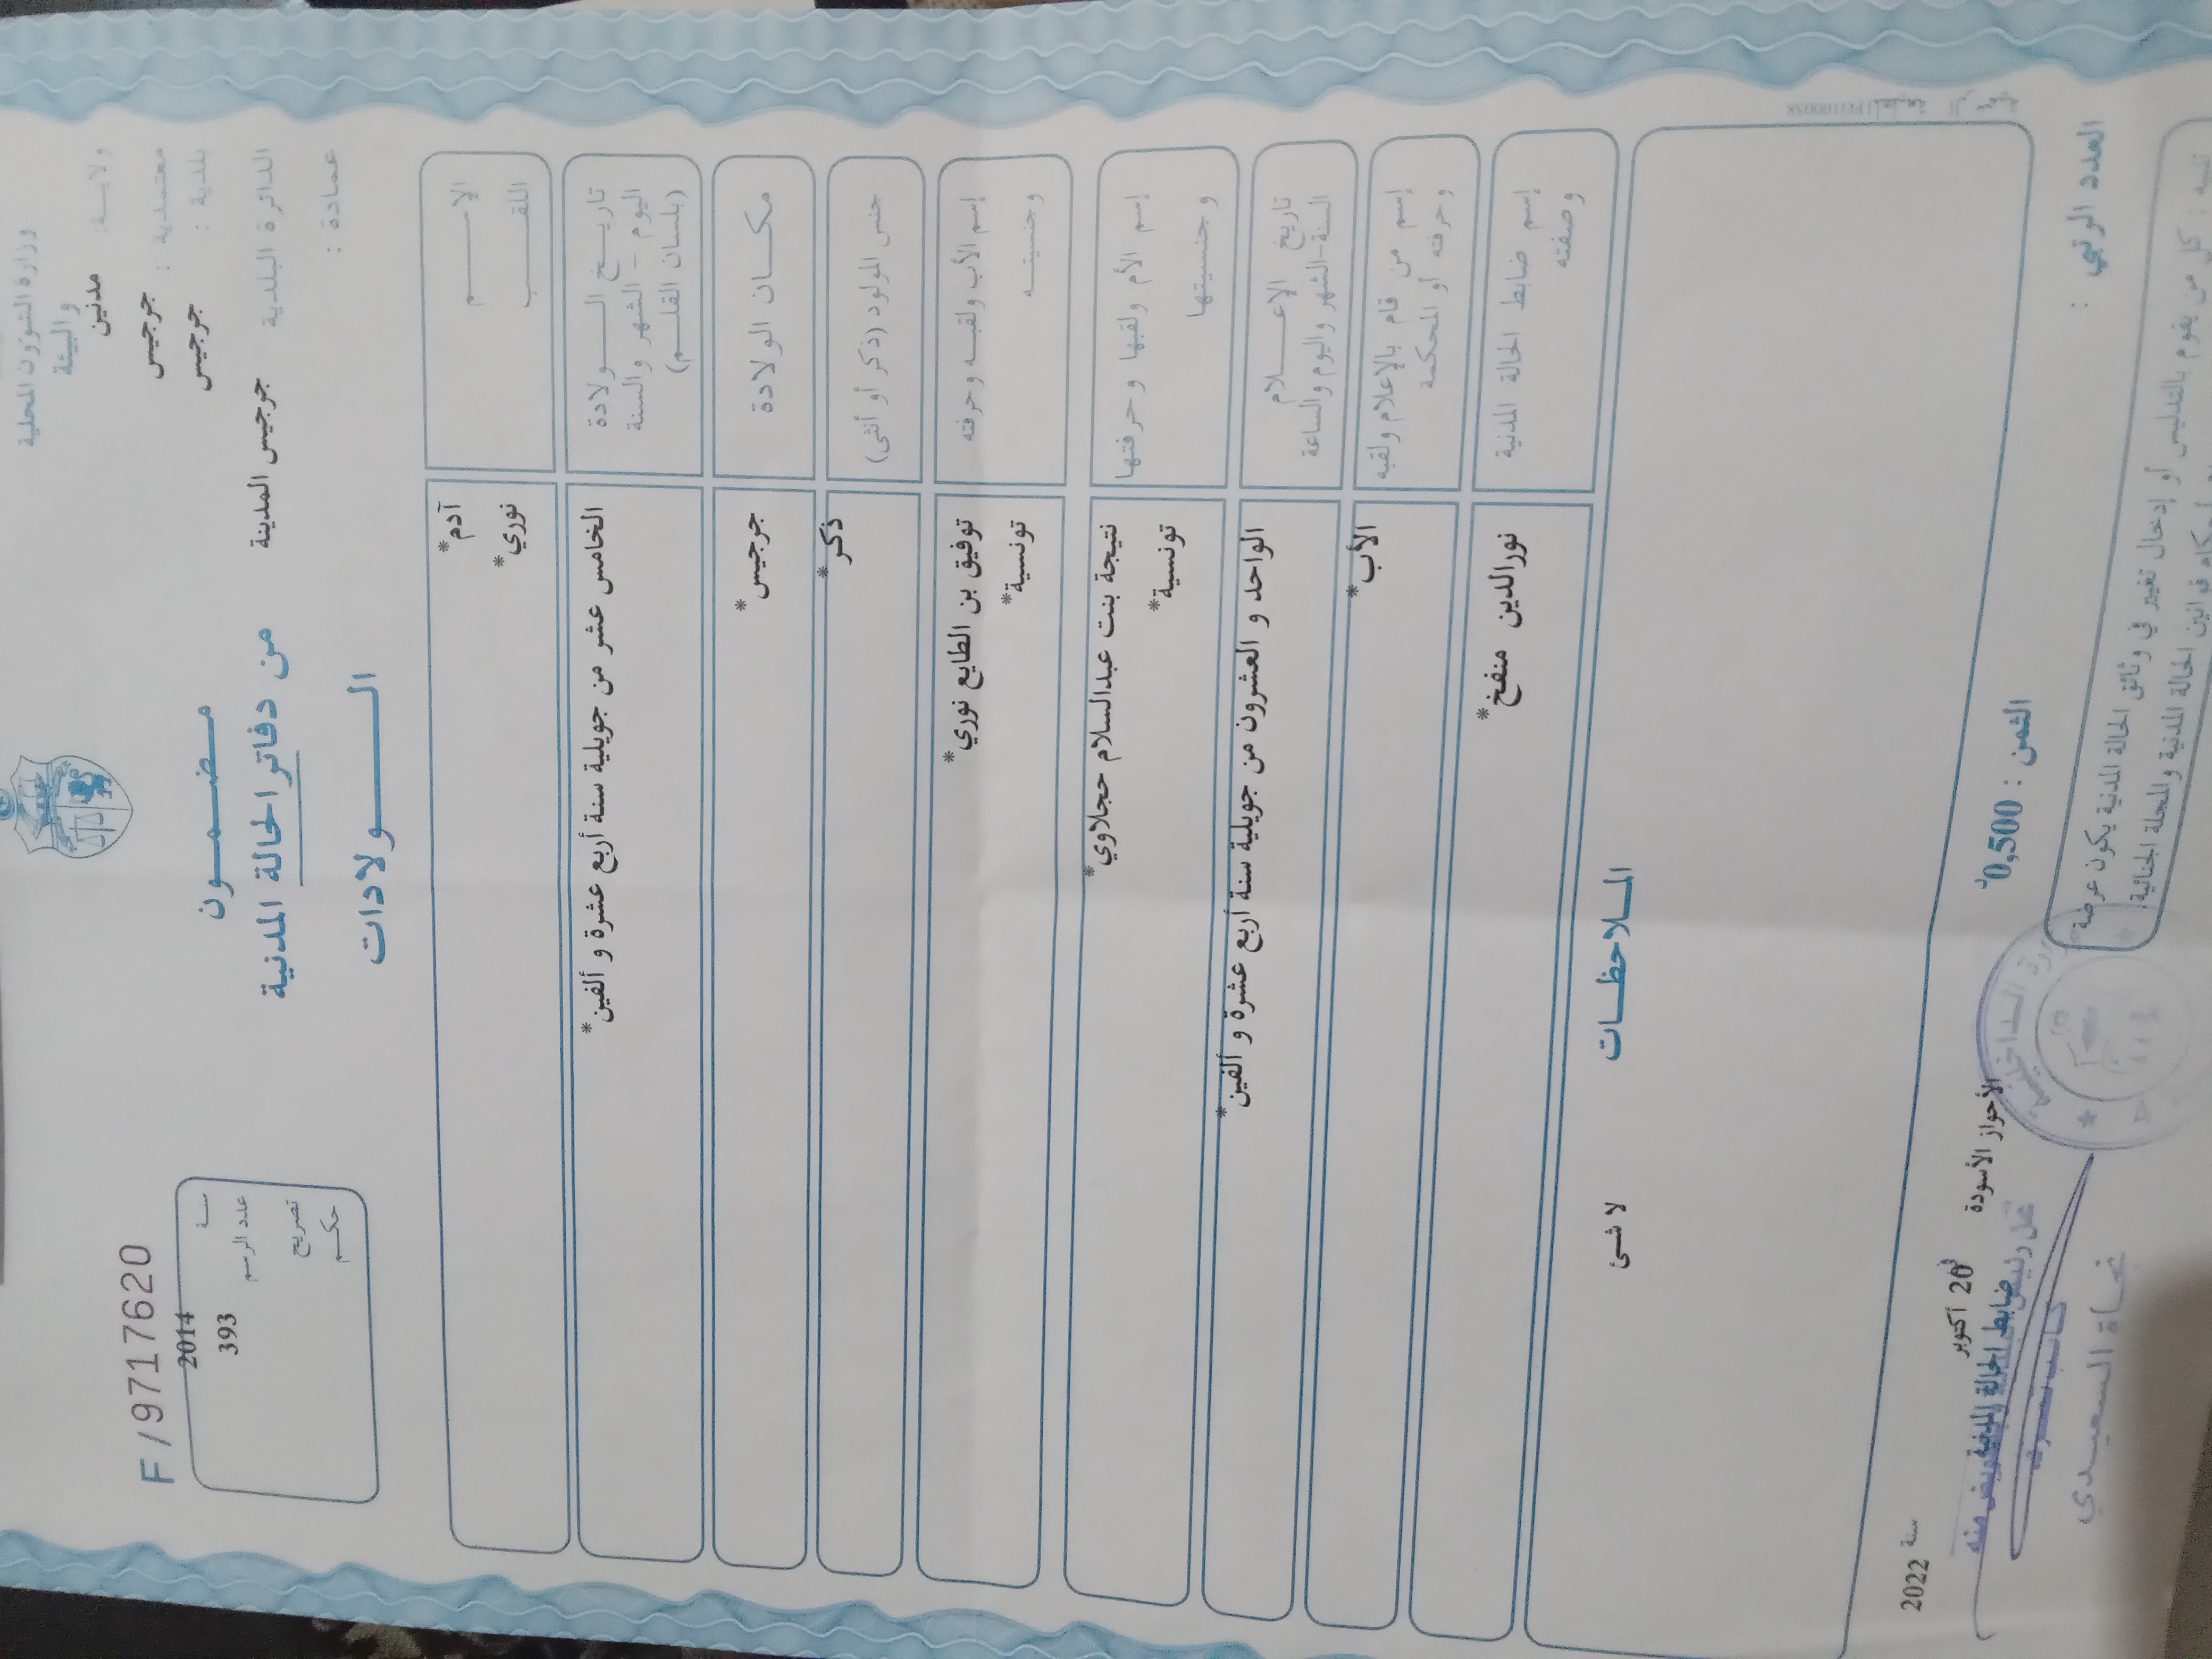 وزارة الشؤون المحلية
والبيئة
ولايـــة: مدنين
معتمدية : جرجيس
بلدية : جرجيس
الدائرة البلدية جرجيس المدينة
عمادة :
مضـمـــون
من دفاتر الحالة المدنية
الـــــولادات
F/9717620
سنـــة 2014
عدد الرسم 393
تصريح
حكــم
الإســـــم آدم*
اللقــــب نوري*
تاريــخ الـــولادة
اليوم – الشهر والسنة
(بلسان القلــم)
الخامس عشر من جويلية سنة أربع عشرة و ألفين*
مكـــان الولادة جرجيس*
جنس المولود (ذكر أو أنثى) ذكر*
إسم الأب ولقبـه وحرفته توفيق بن الطايع نوري*
وجنسيتــه تونسية*
إسم الأم ولقبها وحرفتها نتيجة بنت عبدالسلام حجلاوي*
وجنسيتها تونسية*
تاريخ الإعـــلام
السنة-الشهر واليوم والساعة
الواحد و العشرون من جويلية سنة أربع عشرة و ألفين*
إسم من قام بالإعلام ولقبه
وحرفته أو المحكمة
الأب*
إسم ضابط الحالة المدنية
وصفته
نورالدين منفخ*
المـلاحظـــات
لا شئ
العدد الرتبي :
الثمن : 0,500د
الأحواز الأسودة في 20 أكتوبر سنة 2022
ضابط الحالة المدنية
نجـاة السعيـدي
كل من يقوم بالتدليس أو إدخال تغيير في وثائق الحالة المدنية يكون عرضة
قوانين الحالة المدنية والمجلة الجنائية